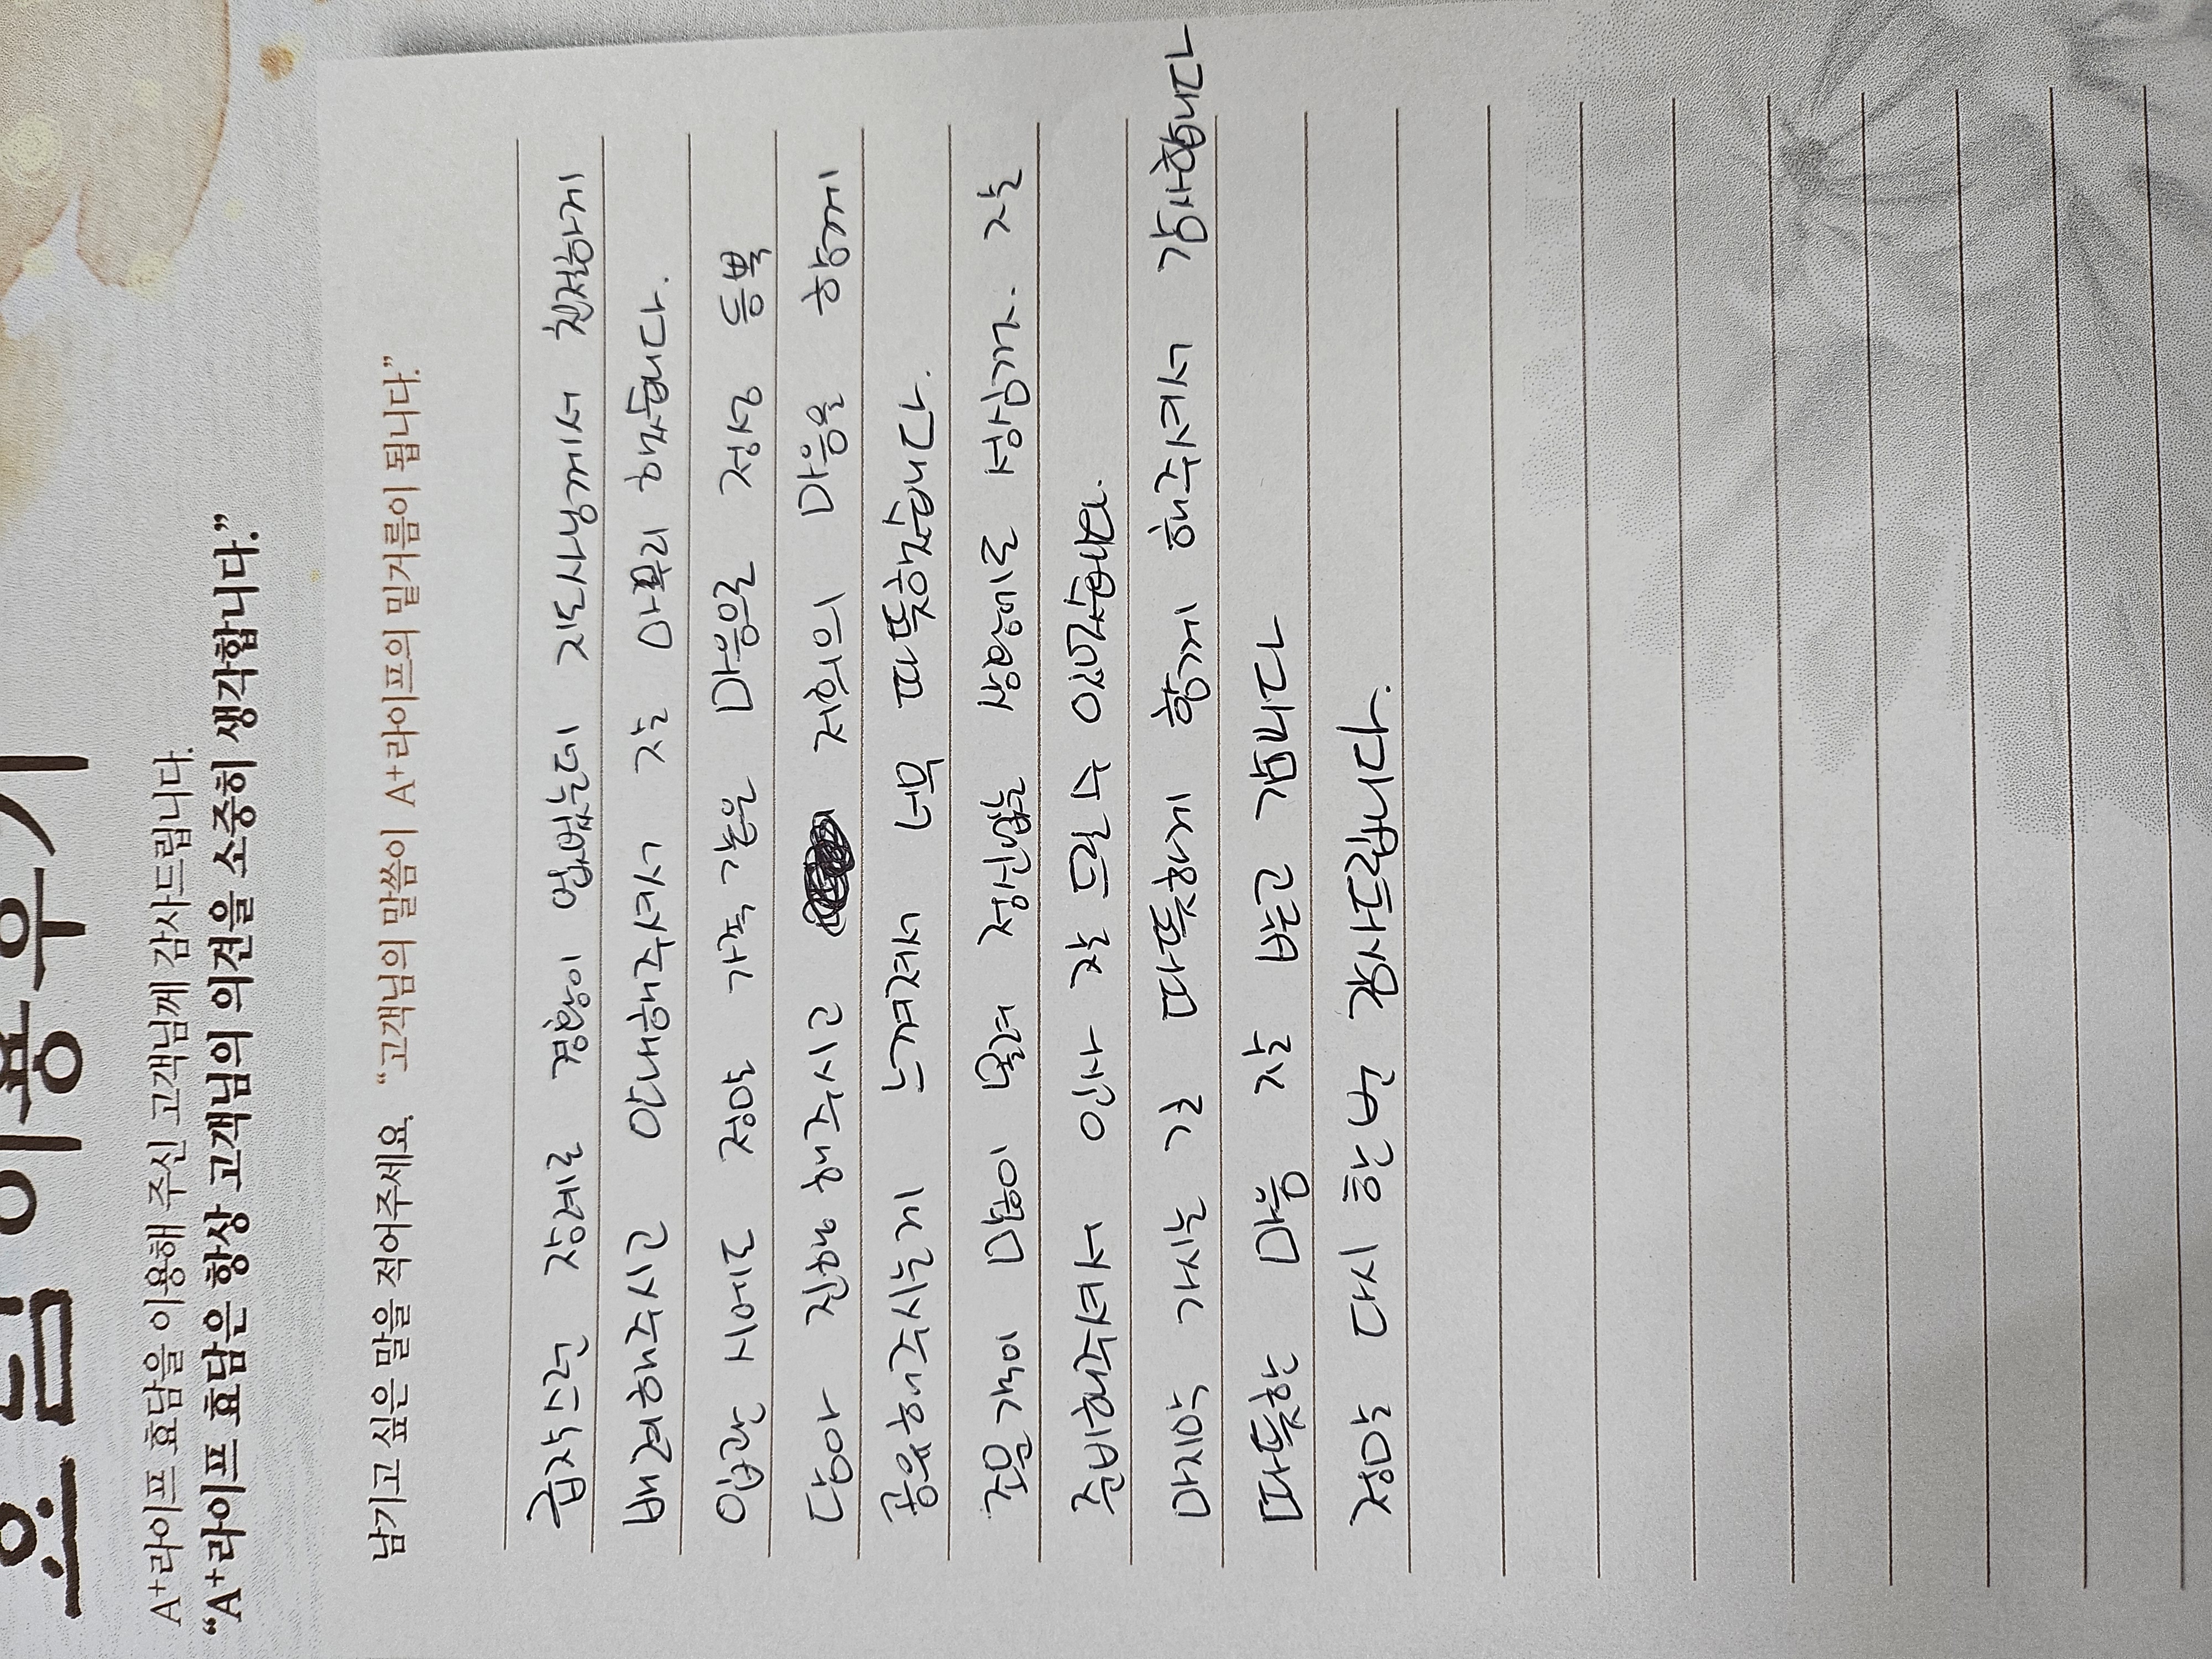 효담 이용후기
A⁺라이프 효담을 이용해 주신 고객님께 감사드립니다.
“A⁺라이프 효담은 항상 고객님의 의견을 소중히 생각합니다.”
남기고 싶은 말을 적어주세요. “고객님의 말씀이 A⁺라이프의 밑거름이 됩니다.”
급작스런 장례로 경황이 없었는데 지도사님께서 친절하게
배려해주시고 안내해주셔서 잘 마무리 했습니다.
입관 시에도 정말 가족 같은 마음으로 정성 듬뿍
담아 진행 해주시고 저희의 마음을 함께
공유해주시는게 느껴져서 너무 따뜻했습니다.
조문객이 많이 몰려 정신없는 상황에도 상차림까지 잘
준비해주셔서 인사 잘 드릴 수 있었습니다.
마지막 가시는 길 따뜻하게 함께 해주셔서 감사합니다
따뜻한 마음 잘 받고 갑니다
정말 다시 한번 감사드립니다.